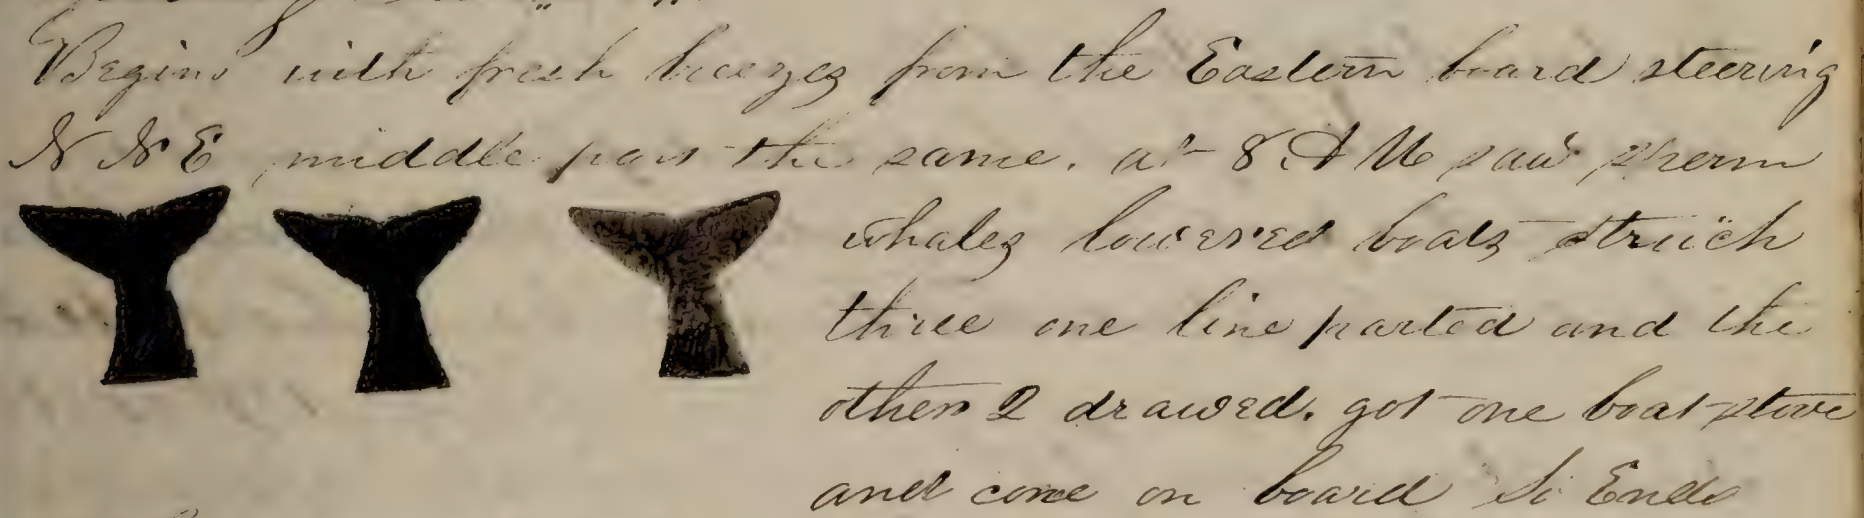 Begins with fresh breezes from the Eastern board steering
N N E middle part the same. at 8 A M saw sperm
whales lowered boats struck
three one line parted and the
other 2 drawed. got one boat stove
and come on board So Ends